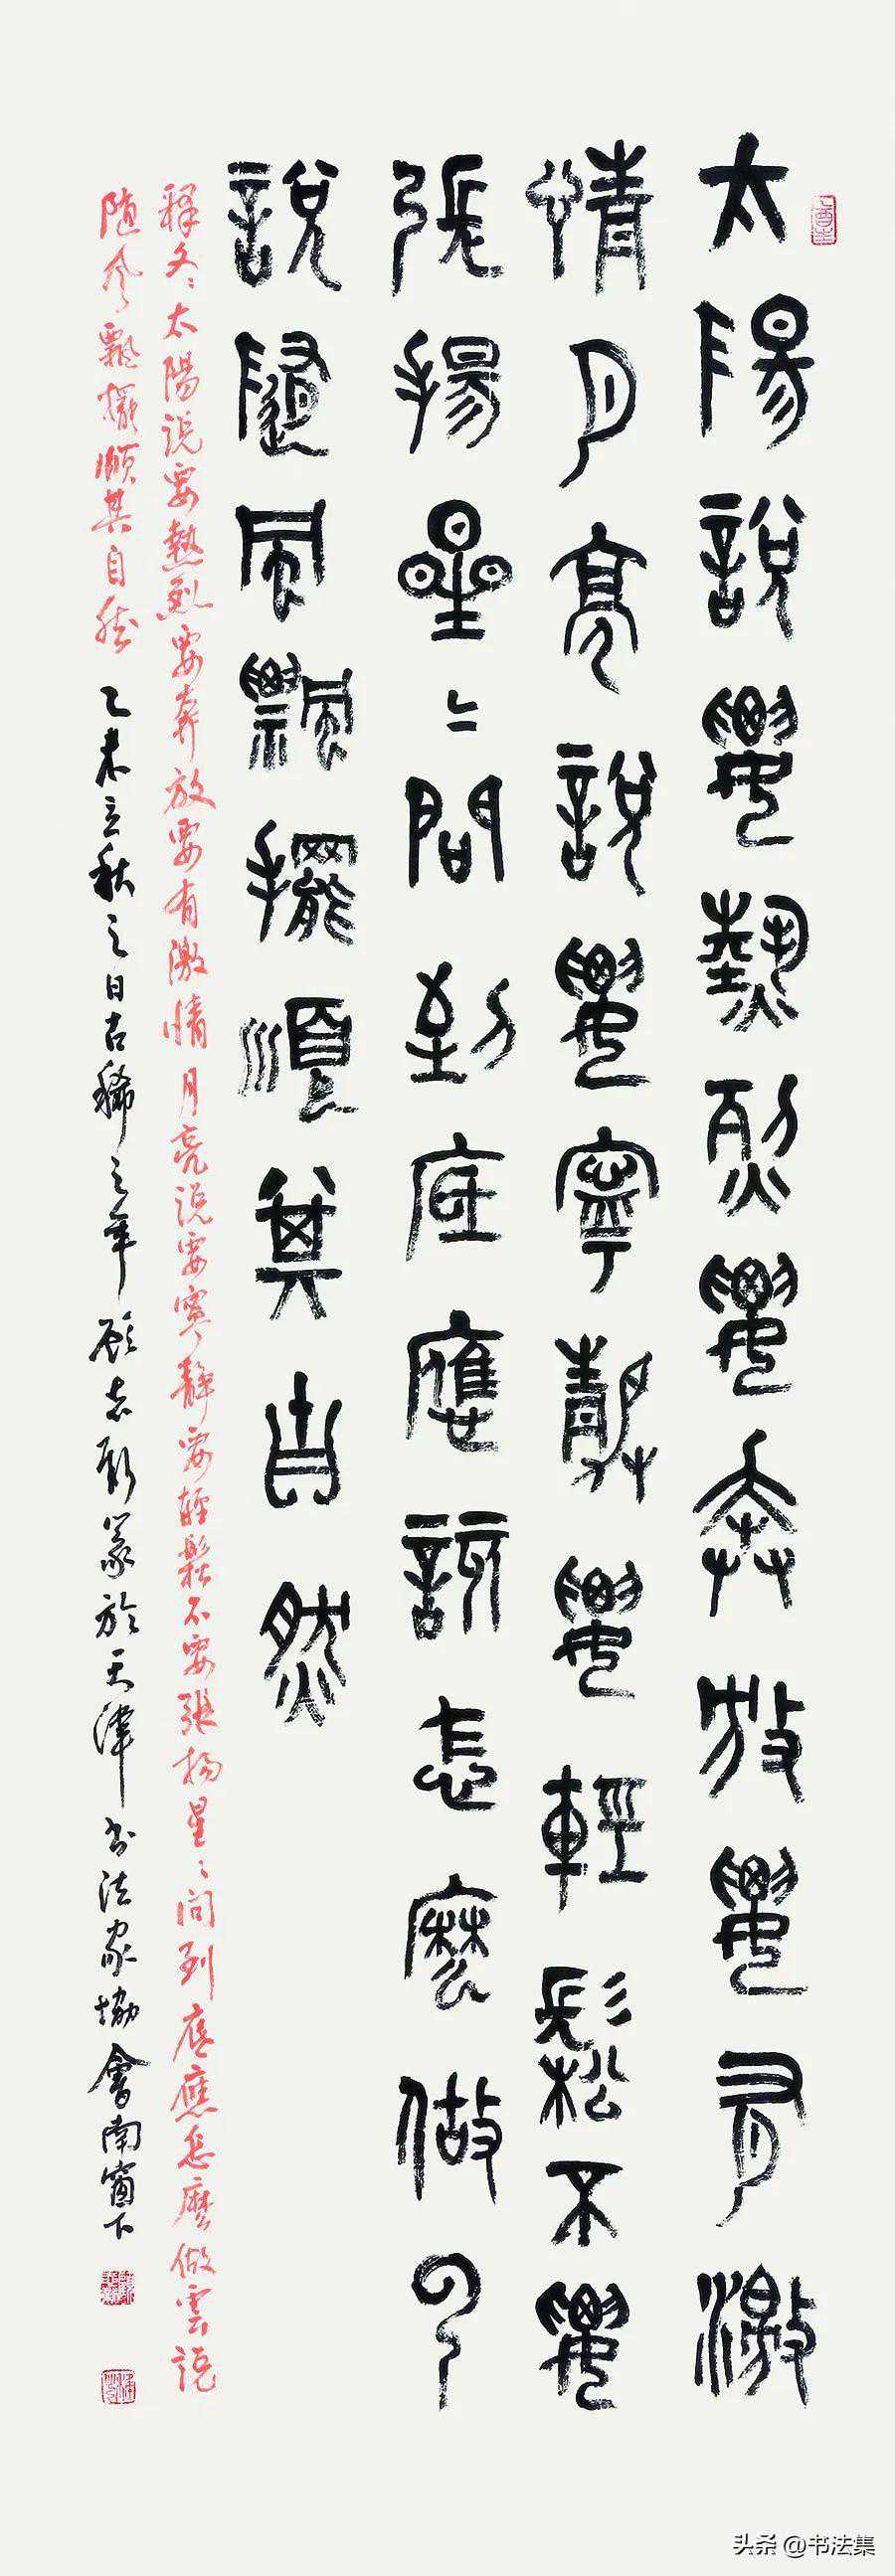 太陽說要熱烈要奔放要有激
情月亮說要寧靜要輕鬆不要
張揚星〻問到底應該怎麽做雲
說隨風飄擺順其自然
釋文太陽说要熱烈要奔放要有激情月亮说要寧靜要輕鬆不要張揚星〻问到底應怎麽做雲説
随风飄擺順其自然 乙未立秋之日古稀之年 志新篆於天津书法家協會南窗下
头条 @书法集